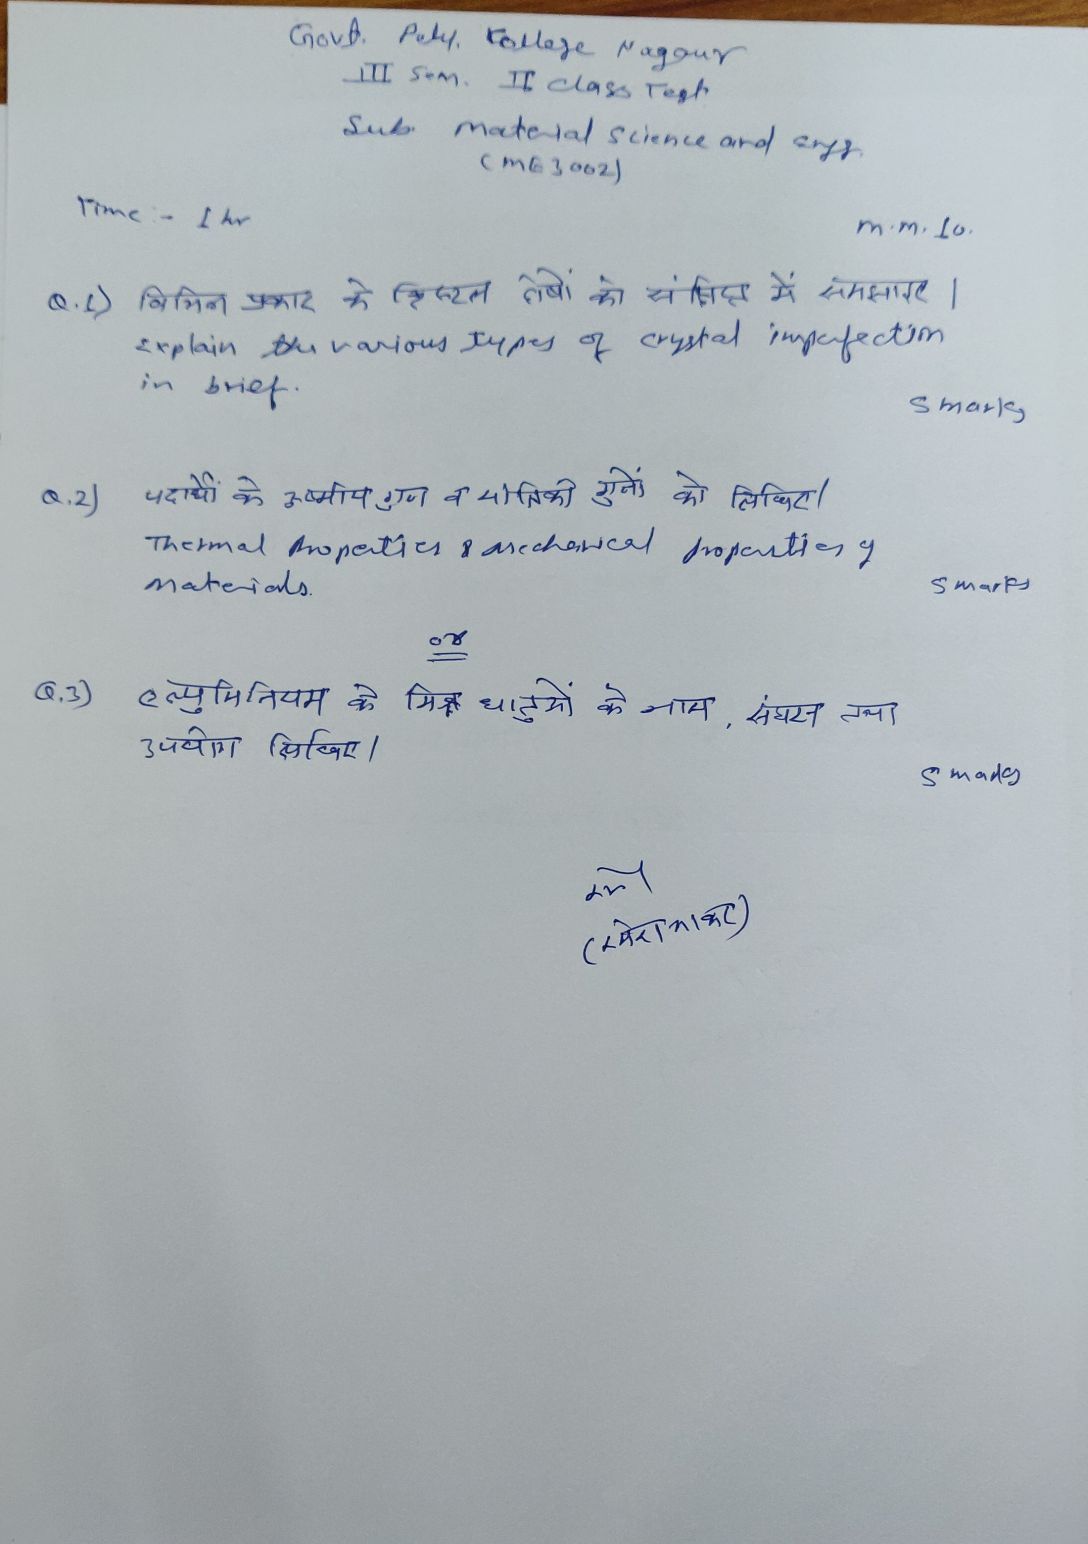 Govt. Poly. College Nagaur
III Sem. II Class Test
Sub. Material Science and engg.
(ME3002)
Time :- 1 hr
m.m. 10.
Q.1) विभिन्न प्रकार के क्रिस्टल दोषों को संक्षिप्त में समझाइए |
Explain the various types of crystal imperfection
in brief.
5 marks
Q.2) पदार्थों के उष्मीय गुण व यांत्रिकी गुनों को लिखिए |
Thermal Properties & Mechanical properties of
Materials.
5 marks
or
Q.3) एल्युमिनियम के मिश्र धातुओं के नाम, संघटन तथा
उपयोग लिखिए |
5 marks